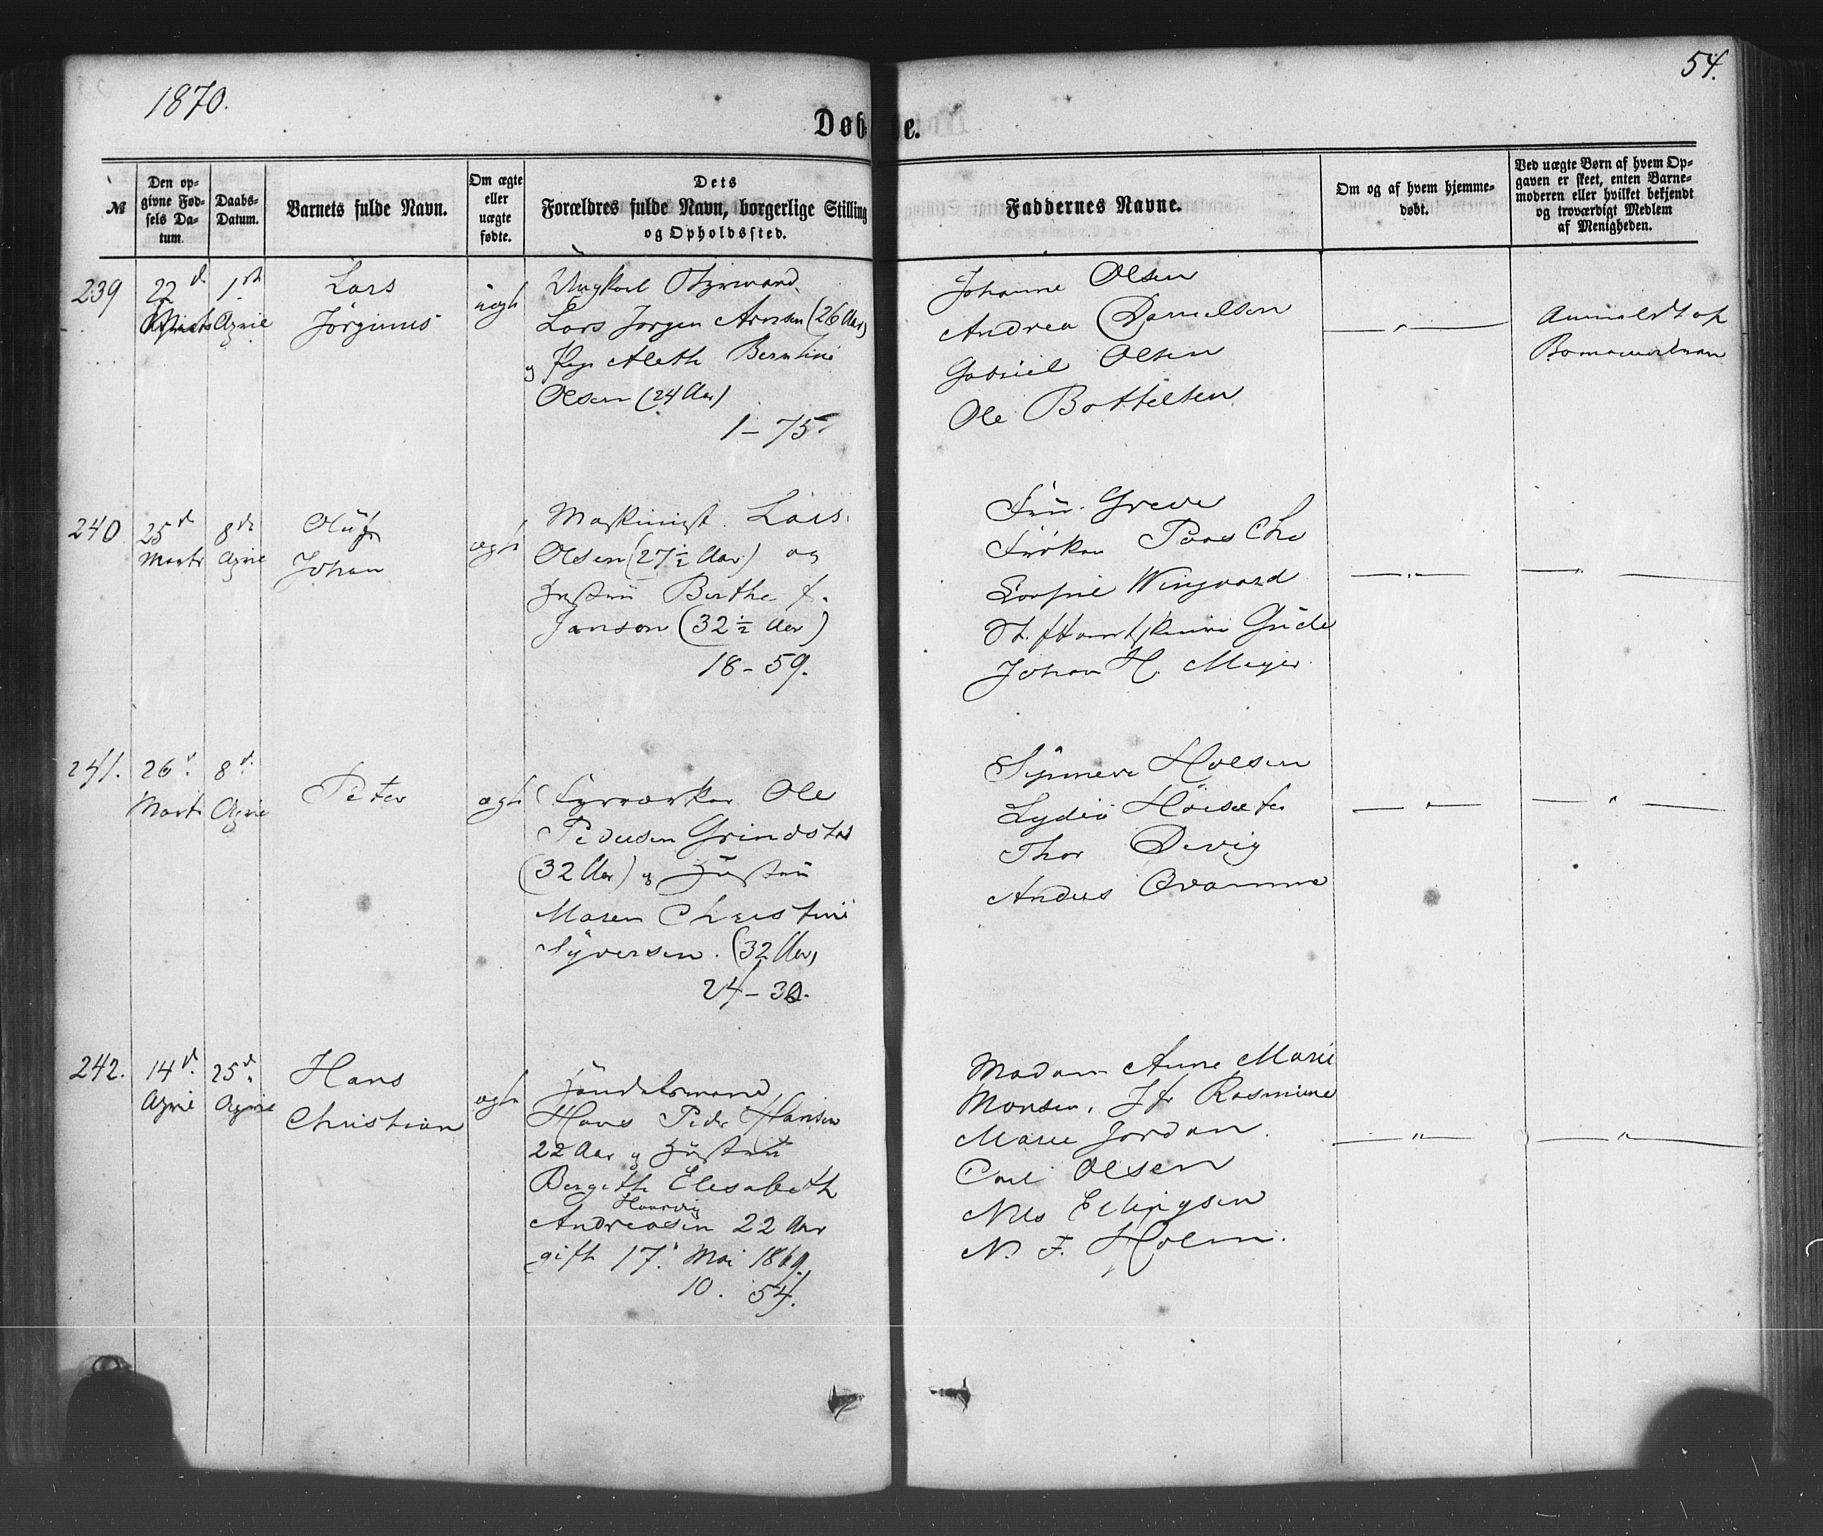 1870.
54.
Døb- te.
№
Den opgivne Fødsels Datum.
Daabs-Datum.
Barnets fulde Navn.
Om ægte eller uægte fødte.
Dets Forældres fulde Navn, borgerlige Stilling og Opholdssted.
Faddernes Navne.
Om og af hvem hjemmedøbt.
Ved uægte Børn af hvem Opgaven er skeet, enten Barnemoderen eller hvilket bekjendt og troværdigt Medlem af Menigheden.
239
22 d
Marts
1ste
April
Lars
Jørginus
uægte
Ungkarl Styrmand
Lars Jørgen Arnsen (26 Aar)
og Pige Aleth Berntine
Olsen (24 Aar)
1 – 75.
Johanne Olsen
Andrea Danielsen
Gabriel Olsen
Ole Bottelsen
— " —
Anmeldt af
Barnemoderen
240
25 d
Marts
8de
April
Oluf
Johan
ægte
Maskinist Lars
Olsen (27 ½ Aar) og
Hustru Berthe f.
Janson (32 ½ Aar)
18 – 59.
Fru Greve
Frøken Paasche
Wingaard
Gude
Johan H. Meyer
— " —
— " —
241.
26 d
Marts
8 d.
April
Peter
ægte
Fyrværker Ole
Pedersen Grindstad
(32 Aar) og Hustru
Maren Christine
Syversen. (32 Aar)
24 – 30.
Synneve Holsen
Lydia Høisæter
Thor Devig
Anders Qvamme
— " —
— " —
242.
14 d.
April
25 d.
April
Hans
Christian
ægte
Handelsmand
Hans Peder Hansen
22 Aar og Hustru
Bergithe Elisabeth
Andreasen 22 Aar
gift 17. Mai 1869.
10. 54.
Madam Anne Marie
Monsen, Jfr Rasmine
Marie Jordan.
Carl Olsen
Nils Ellingsen
N. F. Holm.
— " —
— " —